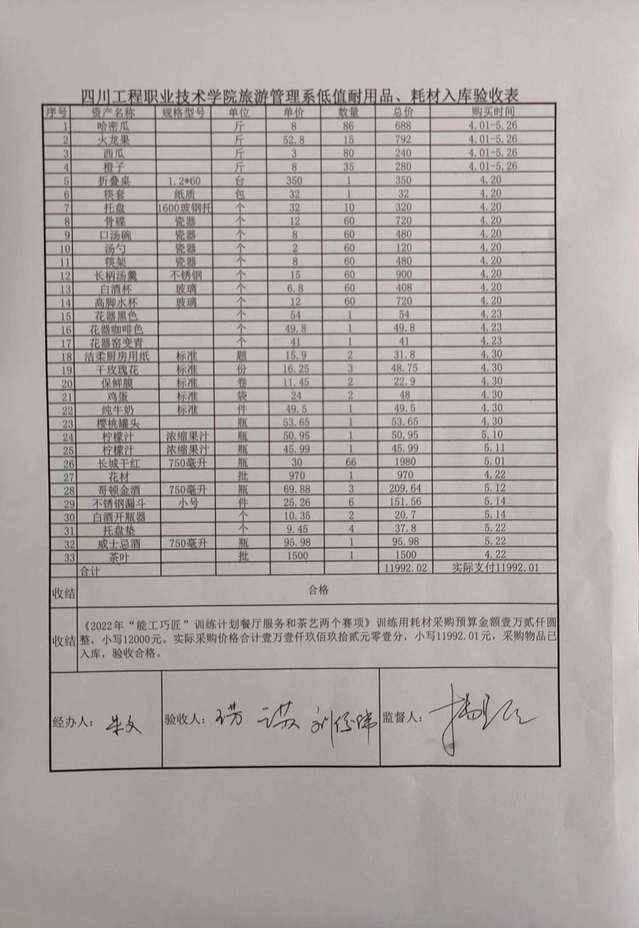 四川工程职业技术学院旅游管理系低值耐用品、耗材入库验收表
序号 资产名称 规格型号 单位 单价 数量 总价 购买时间
1 哈密瓜 斤 8 86 688 4.01-5.26
2 火龙果 斤 52.8 15 792 4.01-5.26
3 西瓜 斤 3 80 240 4.01-5.26
4 橙子 斤 8 35 280 4.01-5.26
5 折叠桌 1.2*60 台 350 1 350 4.20
6 筷套 纸质 包 32 1 32 4.20
7 托盘 1600玻钢托 个 32 10 320 4.20
8 骨碟 瓷器 个 12 60 720 4.20
9 口汤碗 瓷器 个 8 60 480 4.20
10 汤勺 瓷器 个 2 60 120 4.20
11 筷架 瓷器 个 8 60 480 4.20
12 长柄汤羹 不锈钢 个 15 60 900 4.20
13 白酒杯 玻璃 个 6.8 60 408 4.20
14 高脚水杯 玻璃 个 12 60 720 4.20
15 花器黑色 个 54 1 54 4.23
16 花器咖啡色 个 49.8 1 49.8 4.23
17 花器窑变青 个 41 1 41 4.23
18 洁柔厨房用纸 标准 题 15.9 2 31.8 4.30
19 干玫瑰花 标准 份 16.25 3 48.75 4.30
20 保鲜膜 标准 卷 11.45 2 22.9 4.30
21 鸡蛋 标准 袋 24 2 48 4.30
22 纯牛奶 标准 件 49.5 1 49.5 4.30
23 樱桃罐头 瓶 53.65 1 53.65 4.30
24 柠檬汁 浓缩果汁 瓶 50.95 1 50.95 5.10
25 柠檬汁 浓缩果汁 瓶 45.99 1 45.99 5.11
26 长城干红 750毫升 瓶 30 66 1980 5.01
27 花材 批 970 1 970 4.22
28 哥顿金酒 750毫升 瓶 69.88 3 209.64 5.12
29 不锈钢漏斗 小号 件 25.26 6 151.56 5.14
30 白酒开瓶器 个 10.35 2 20.7 5.14
31 托盘垫 个 9.45 4 37.8 5.22
32 威士忌酒 750毫升 瓶 95.98 1 95.98 5.22
33 茶叶 批 1500 1 1500 4.22
合计 11992.02 实际支付11992.01
收结 合格
收结 《2022年“能工巧匠”训练计划餐厅服务和茶艺两个赛项》训练用耗材采购预算金额壹万贰仟圆
整，小写12000元。实际采购价格合计壹万壹仟玖佰玖拾贰元零壹分，小写11992.01元，采购物品已
入库，验收合格。
经办人： 验收人： 监督人：